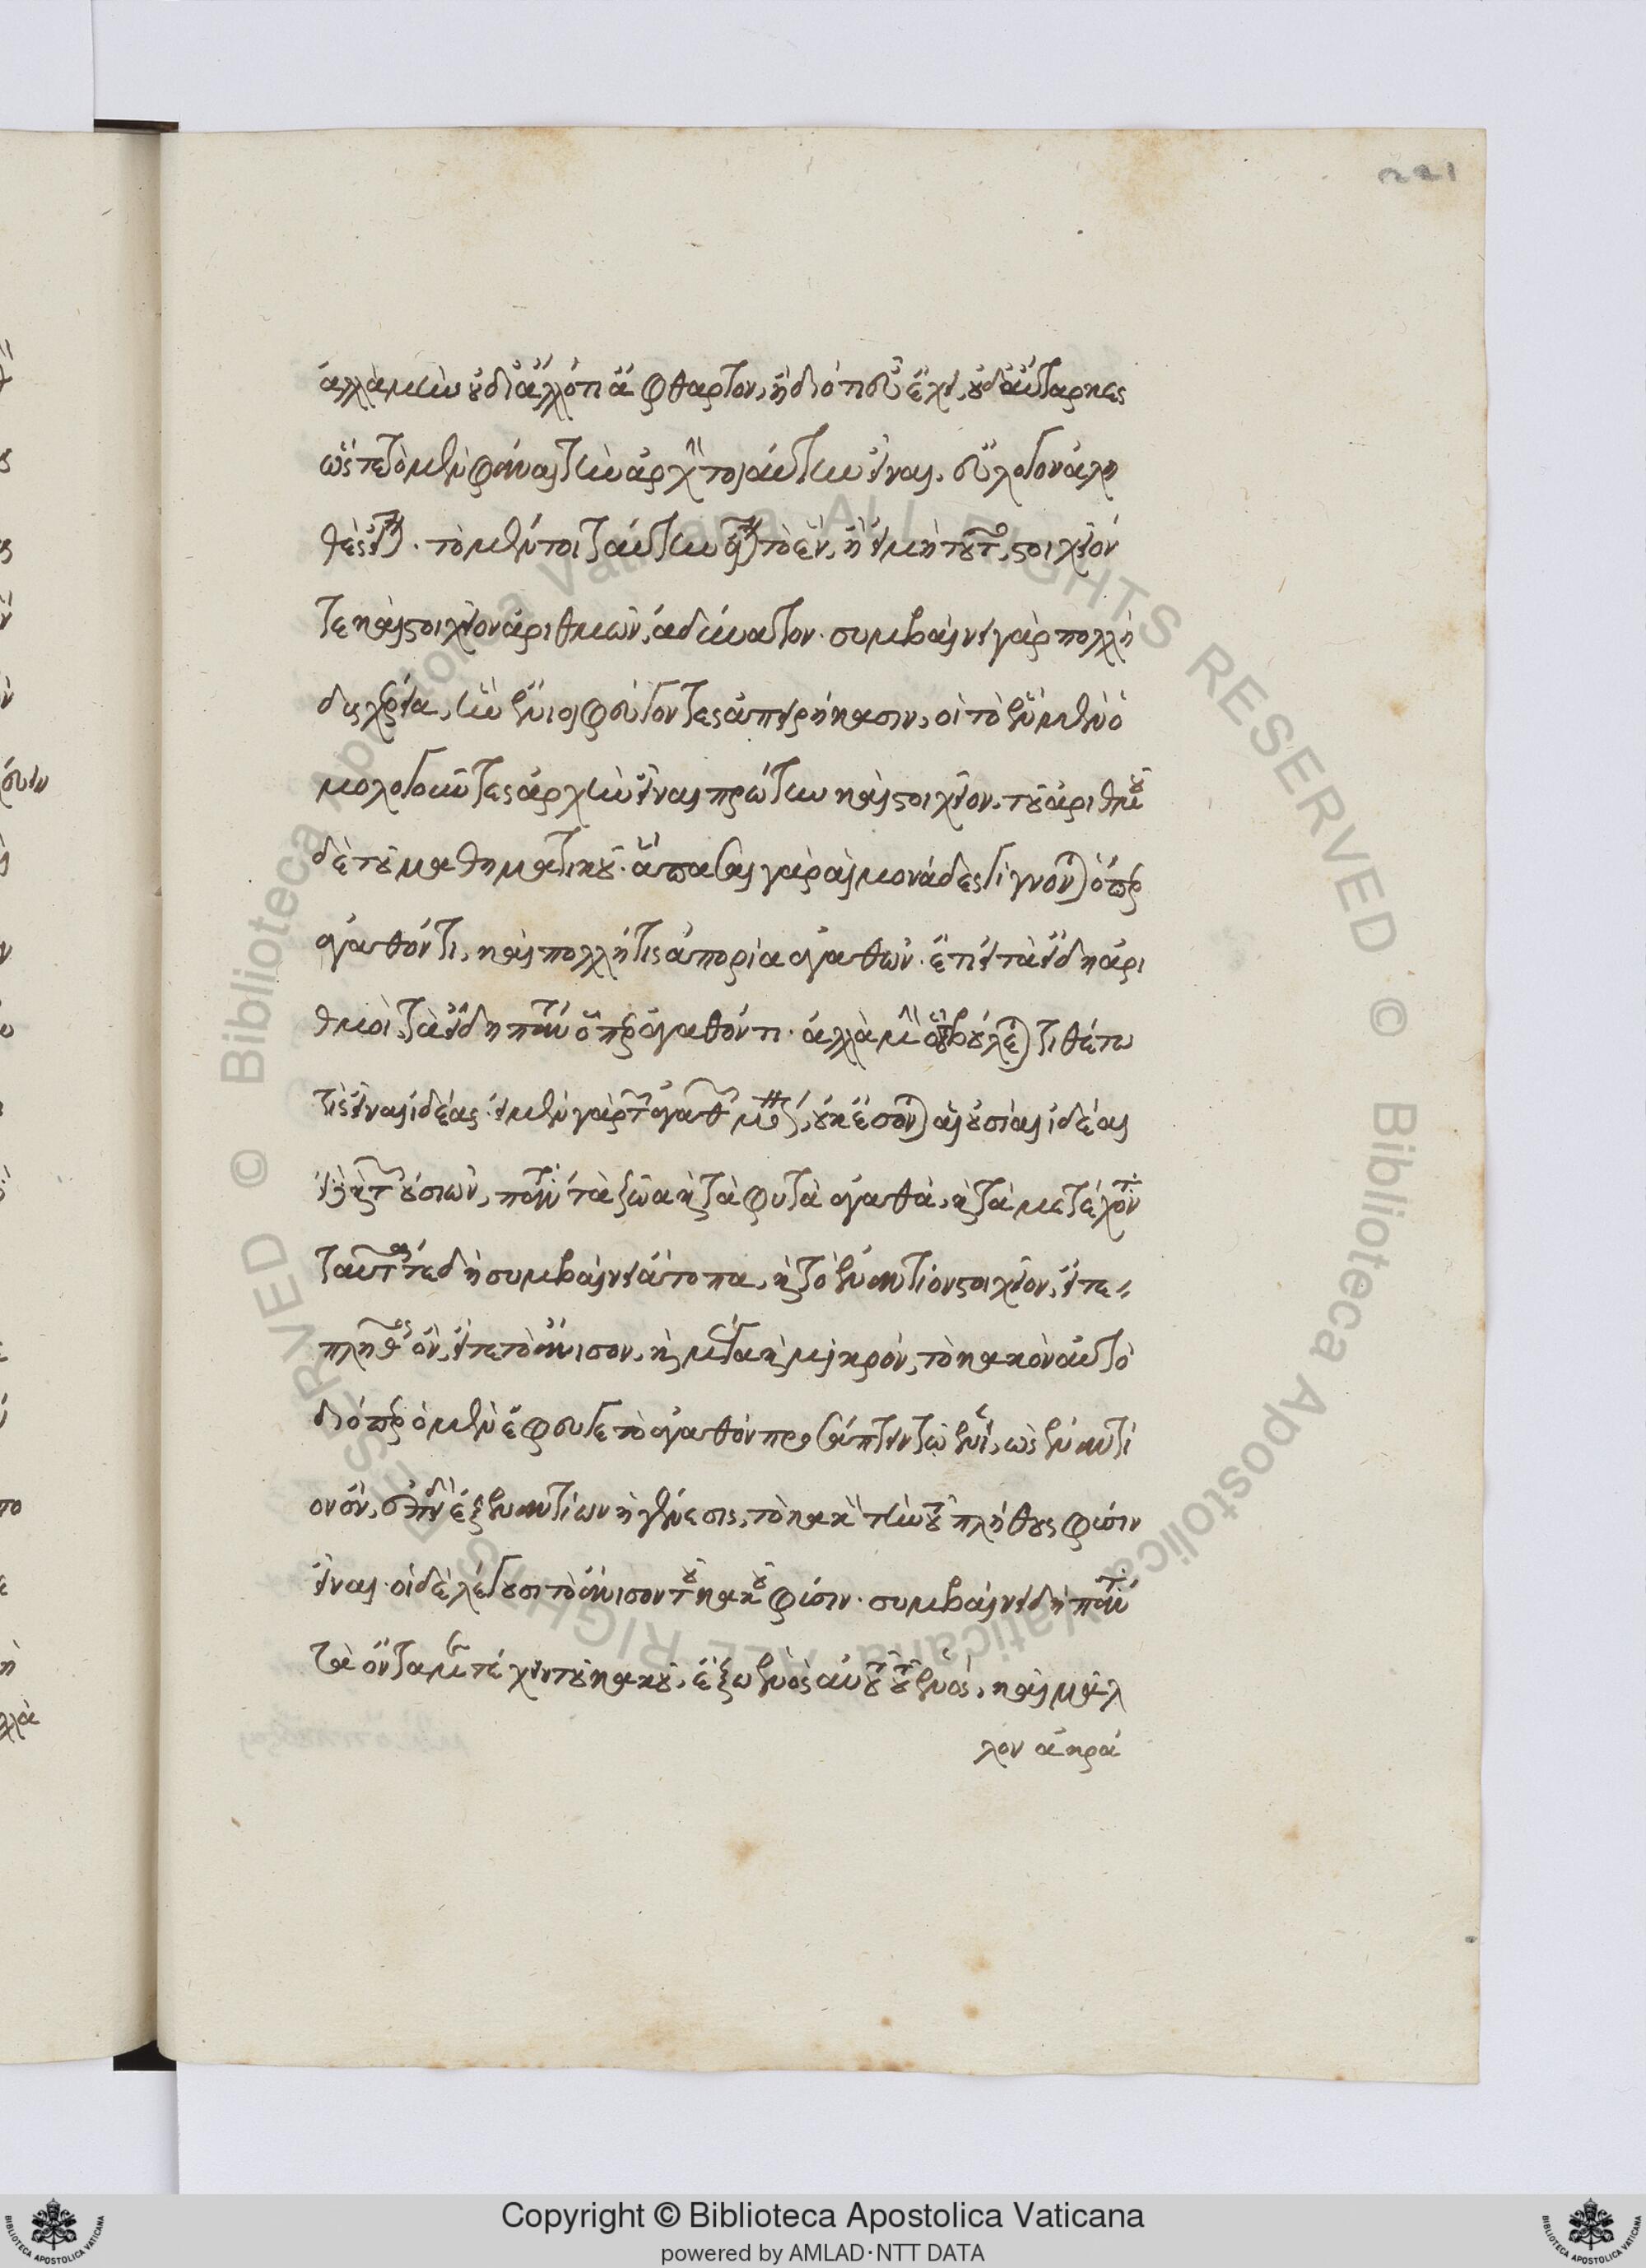 221
ἀλλὰ μὴν οὐ δι' ἄλλό τι ἄφθαρτον, ἢ διότι εὖ ἔχει, οὐδ' αὔταρκες
ὥστε τὸ μὲν φάναι τὴν ἀρχὴν τοιαύτην εἶναι, εὔλογον ἀλη
θὲς εἶναι. τὸ μέντοι ταύτην εἶναι τὸ ἕν, ἢ εἰ μὴ τοῦτο, στοιχεῖόν
τε καὶ στοιχεῖον ἀριθμῶν, ἀδύνατον. συμβαίνει γὰρ πολλὴ
δυσχέρεια, ἣν ἔνιοι φεύγοντες ἀπειρήκασιν, οἱ τὸ ἓν μὲν ὁ
μολογοῦντες ἀρχὴν εἶναι πρώτην καὶ στοιχεῖον, τοῦ ἀριθμοῦ
δὲ τοῦ μαθηματικοῦ. ἅπασαι γὰρ αἱ μονάδες γίγνονται ὅπερ
ἀγαθόν τι, καὶ πολλή τις ἀπορία ἀγαθῶν. ἔτι εἰ τὰ εἴδη ἀρι
θμοί, τὰ εἴδη πάντα ὅπερ ἀγαθόν τι. ἀλλὰ μὴν ὅτου βούλεται τιθέτω
τις εἶναι ἰδέας. εἰ μὲν γὰρ τῶν ἀγαθῶν μόνον, οὐκ ἔσονται αἱ οὐσίαι ἰδέαι
εἰ δὲ καὶ τῶν οὐσιῶν, πάντα τὰ ζῷα καὶ τὰ φυτὰ ἀγαθὰ, καὶ τὰ μετέχοντα
ταῦτά τε δὴ συμβαίνει ἄτοπα, καὶ τὸ ἐναντίον στοιχεῖον, εἴτε
πλῆθος ὂν, εἴτε τὸ ἄνισον, καὶ μέγα καὶ μικρόν, τὸ κακὸν αὐτό
διόπερ ὁ μὲν ἔφευγε τὸ ἀγαθὸν προσάπτειν τῷ ἑνί, ὡς ἐναντί
ον ὄν, ἐπειδὴ ἐξ ἐναντίων ἡ γένεσις, τὸ κακὸν τὴν τοῦ πλήθους φύσιν
εἶναι. οἱ δὲ λέγουσι τὸ ἄνισον τὴν τοῦ κακοῦ φύσιν. συμβαίνει δὴ πάντα
τὰ ὄντα μετέχειν τοῦ κακοῦ, ἔξω ἑνὸς αὐτοῦ τοῦ ἑνός, καὶ μᾶλ
λον ἀκρά
Copyright © Biblioteca Apostolica Vaticana
powered by AMLAD·NTT DATA